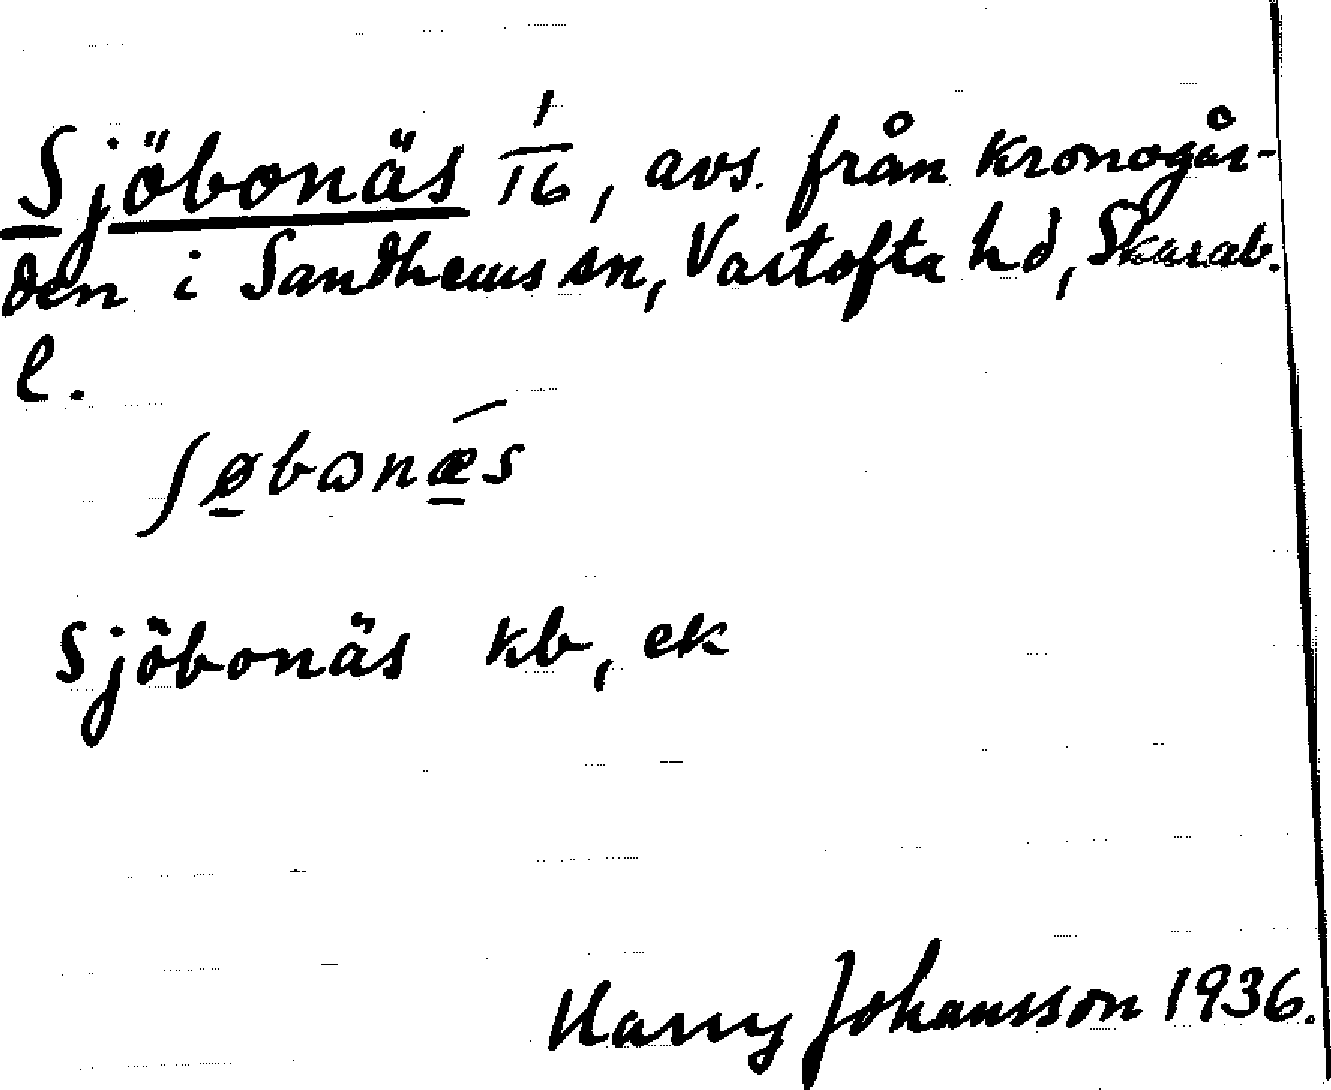 Sjöbonäs 1/16, avs. från Kronogår-
den i Sandhems sn, Vartofta hd, Skarab.
l.
ʃøbωnǽs
Sjöbonäs kb, ek
Harry Johansson 1936.